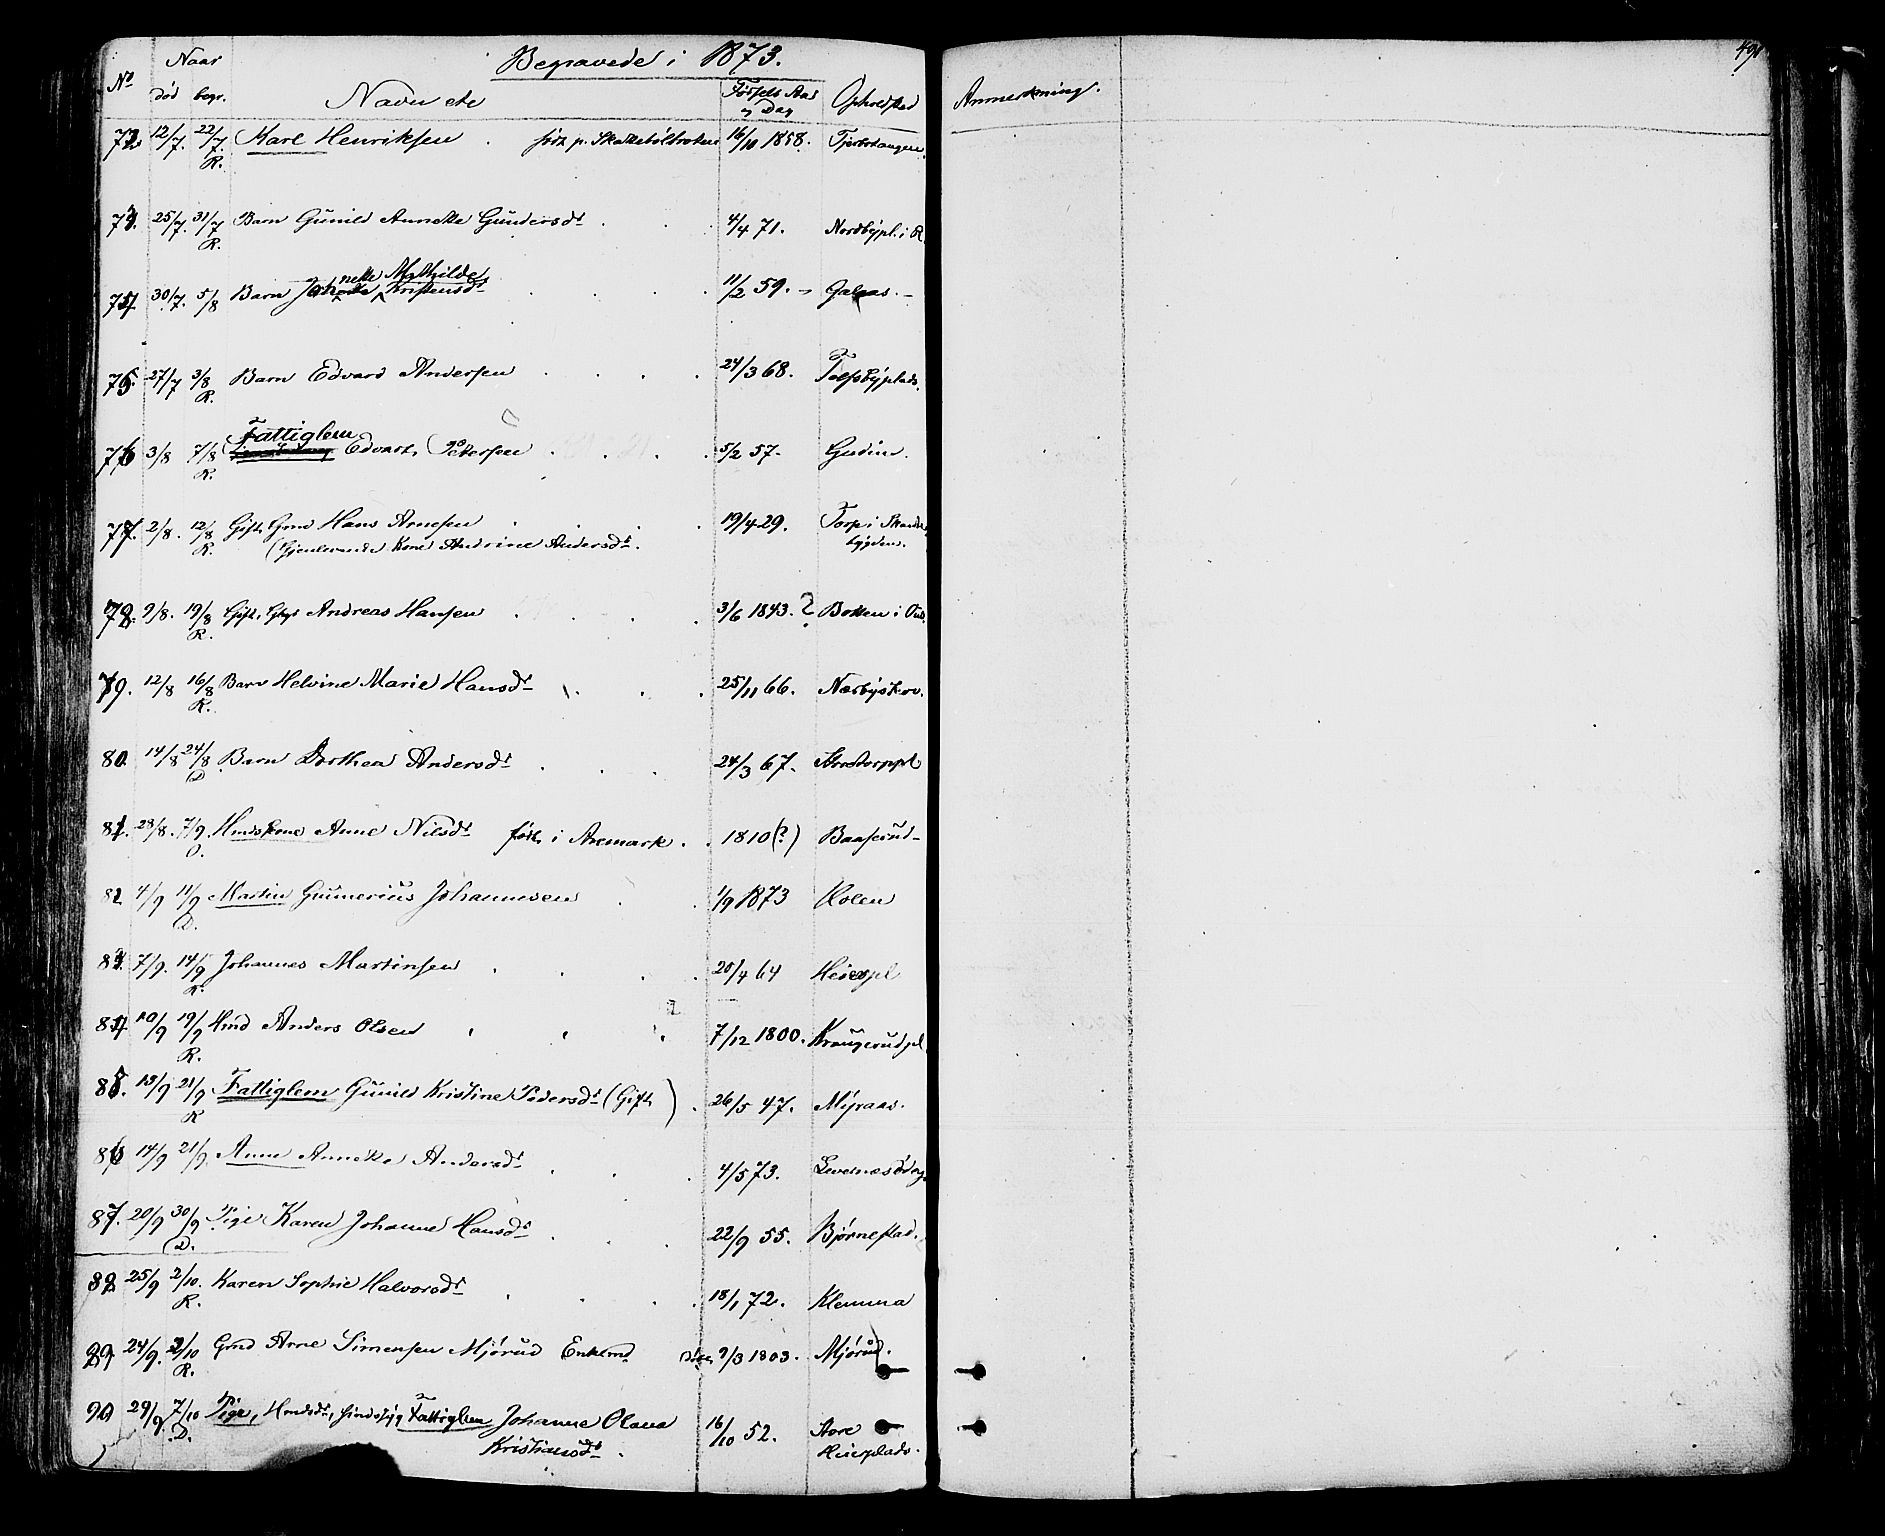 491
Begravede i 1873.
Naar
No død begr. Navn etc Fødsels Aar og Dag Opholdsted Anmerkning.
72. 12/7. 22/7 R. Karl Henriksen . født p. 16/10 1858.
73. 25/7. 31/7 R. Barn Gunild Annette Gundersdt 4/4 71. Nordbypl. i R.
74. 30/7. 5/8 Barn Johanette Mathilde Kristensdt 11/2 59. Galaas.
75. 27/7 3/8 R. Barn Edvard Andersen 24/3 68. Tolfsbyplads.
76 3/8 7/8 R. Fattiglem Edvart Petersen 5/2 57. Gudim.
77. 2/8. 12/8 R. Gift Gmd Hans Arnesen 19/4 29. Torp i
(Gjenlevende Kone Andrine Andersdt. bygden.
78. 9/8. 19/8 R. Gift, Andreas Hansen 3/6 1843. ? Botten i
79. 12/8 16/8 R. Barn Helvine Marie Hansdt 25/11 66. Næsbyskov.
80. 14/8 24/8 D. Barn Dorthea Andersdt 24/3 67.
81. 28/8. 7/9. O. Hmdskone Anne Nilsdt født i Aremark. 1810 (?) Baaserud
82 4/9 11/9 D. Martin Gunnerius Johannesen 1/9 1873 Holen
83. 7/9. 14/9 R. Johannes Martinsen 20/4 64 Heierpl
84 10/9 19/9 R. Hmd Anders Olsen 7/12 1800. Krangerudpl.
85. 13/9 21/9 R Fattiglem Gunild Kristine Pedersdt (Gift) 26/5 47. Myraas.
86 14/9 21/9. Anne Annette Andersdt 4/5 73.
87. 20/9 30/9 D. Pige Karen Johanne Hansdt 22/9 55. Bjørnestad.
88 25/9 2/10. R. Karen Sophie Halvorsdt 18/1 72. Klemma
89 24/9. 2/10 R. Gmd Arne Simensen Mjørud Enkemd 9/3 1803. Mjørud.
90 29/9. 7/10 D. Pige, Hmdsdt, sindssyg Fattiglem Johanne Olava 16/10 52. Aore
Kristiansdt. Heierplads.